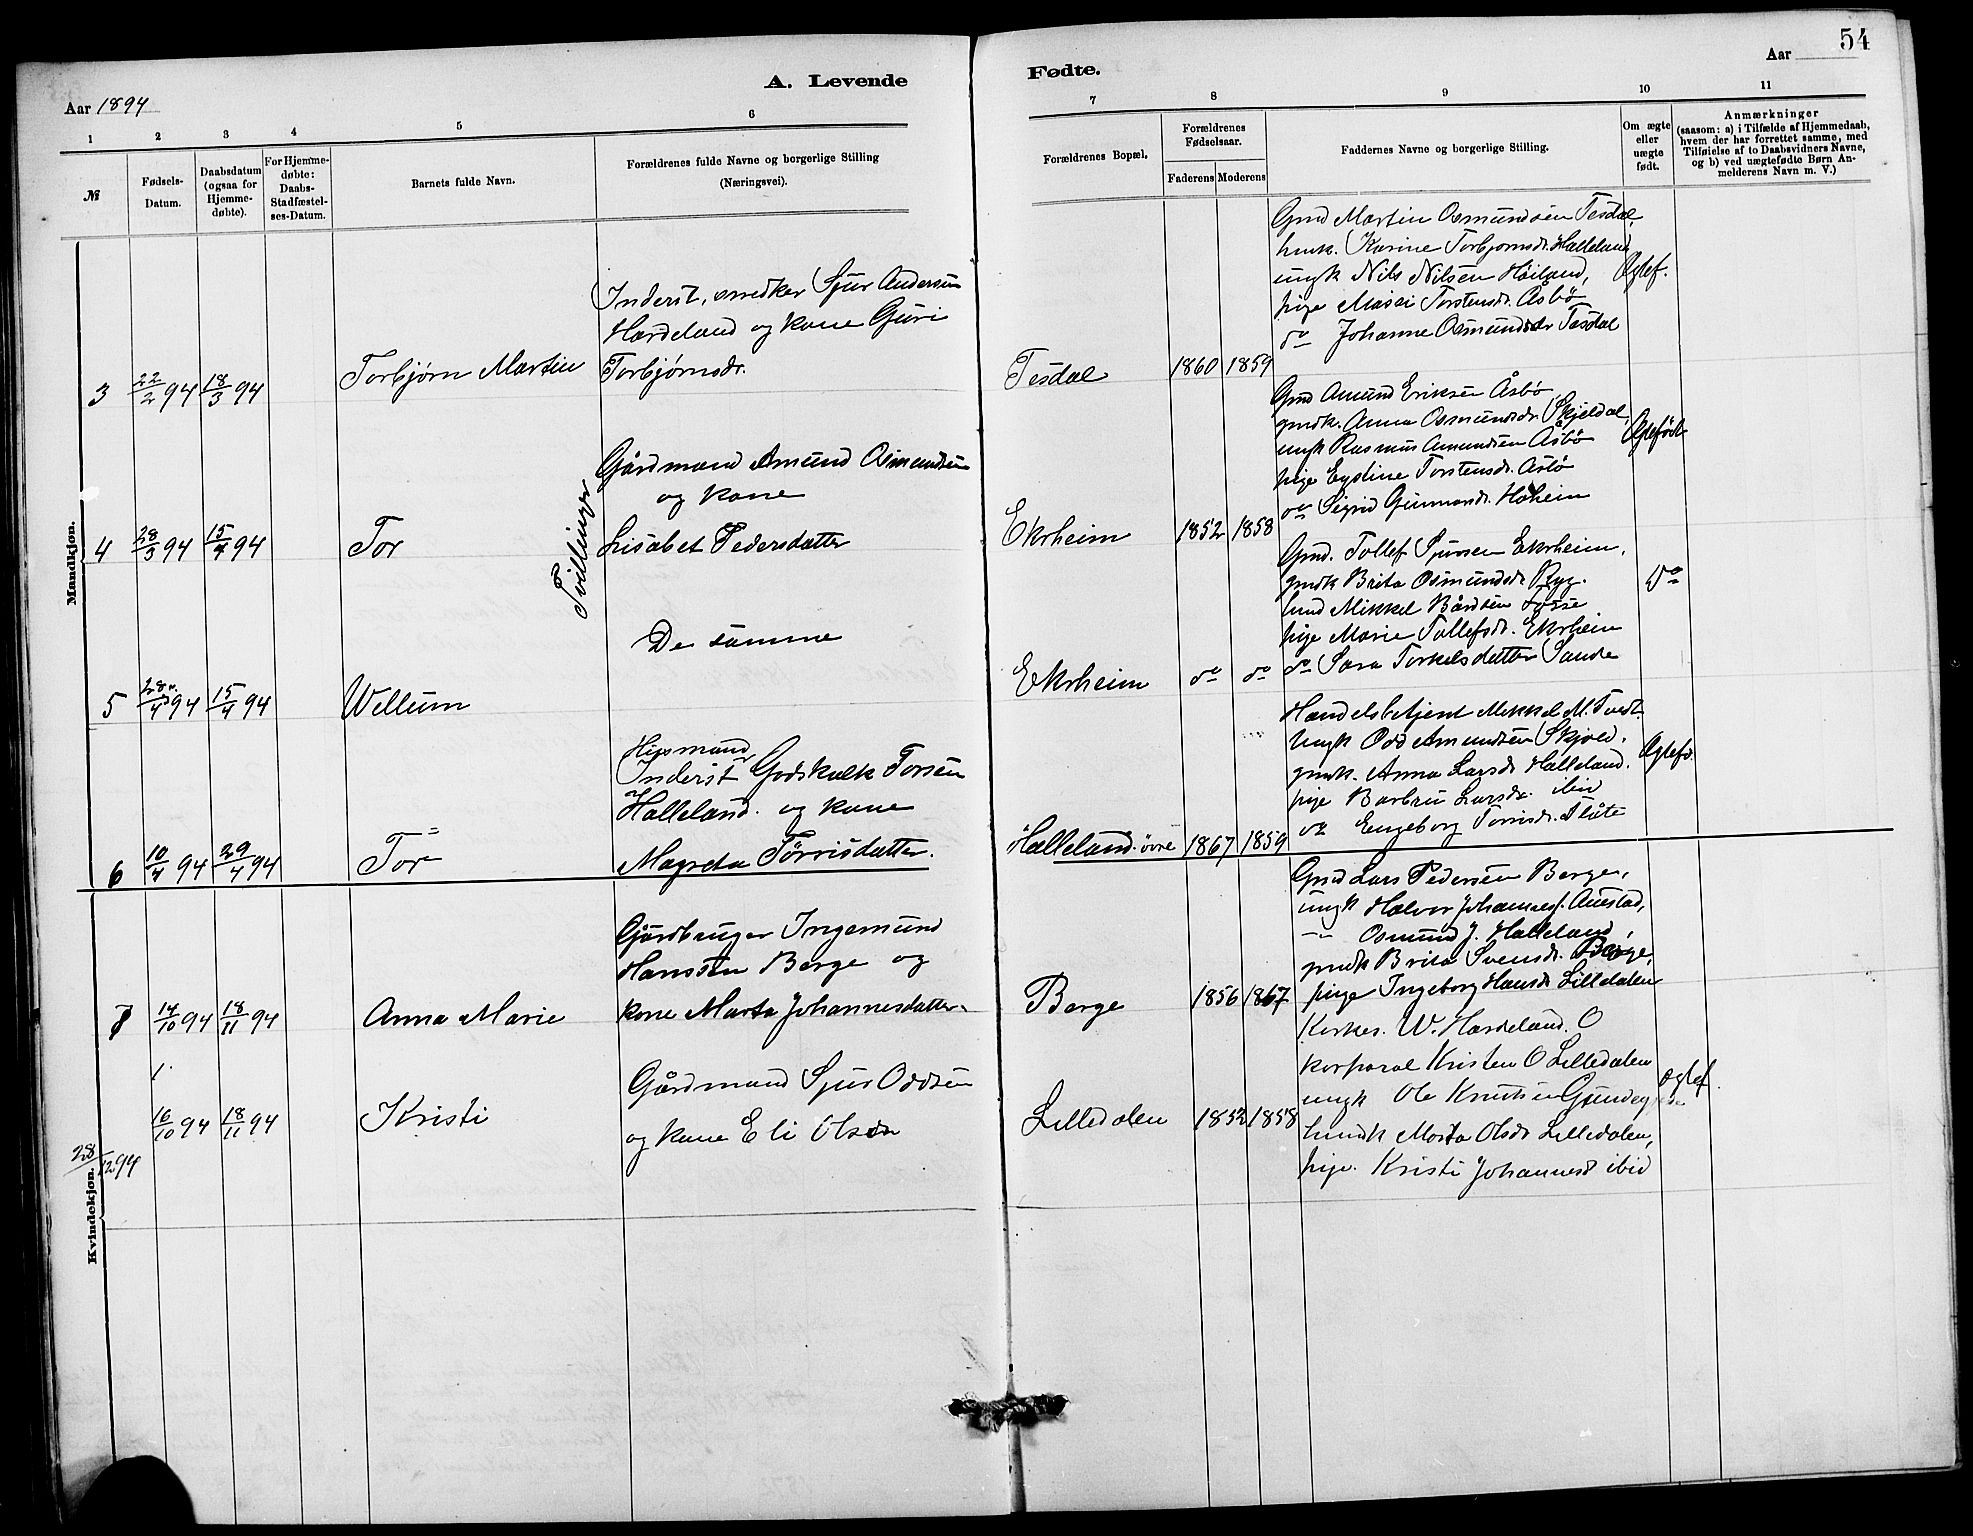 54
Aar 1894
A. Levende
Fødte.
Aar
1 2 3 4 5 6 7 8 9 10 11
№
Fødsels-
Datum.
Daabsdatum
(ogsaa for
Hjemme-
døbte).
For Hjemme-
døbte:
Daabs-
Stadfæstel-
ses-Datum.
Barnets fulde Navn.
Forældrenes fulde Navne og borgerlige Stilling
(Næringsvei).
Forældrenes Bopæl.
Forældrenes
Fødselsaar.
Faderens Moderens
Faddernes Navne og borgerlige Stilling.
Om ægte
eller
uægte
født.
Anmærkninger
(saasom: a) i Tilfælde af Hjemmedaab,
hvem der har forrettet samme, med
Tilføielse af to Daabsvidners Navne,
og b) ved uægtefødte Børn An-
melderens Navn m. V.)
Mandkjøn.
3 22/2 94 18/3 94 Torbjørn Martin
Inderst, snedker Sjur Andersen
Hardeland og kone Guri
Torbjørnsdr.
Tesdal 1860 1859
Gmd Martin Osmundsen Tesdal,
husk. Karine Torbjørnsdr. Halleland
ungk Nils Nilsen Høiland,
pige Torstensdr. Åsbø
do Johanne Osmundsdr Tesdal
Ægtef.
4 28/3 94 15/4 94 Tor
Tvillinger
Gårdmand Amund Osmundsen
og kone
Lisabet Pedersdatter
Ekrheim 1852 1858
Gmd Amund Eriksen Åsbø
gmdk. Anna Osmundsdr. Skjeldal,
ungk Rasmus Amundsen Åsbø
pige Torstensdr. Åsbø
do Sigrid Gunnarsdr.
Ægtefødt
5 94 15/4 94 Wellum
De samme
Ekrheim do do
Gmd. Tollef Sjursen Ekrheim,
gmdk Brita Osmundsdr Ryg.
Mikkel Bårdsen Fosse
pige Marie Tollefsdr. Ekrheim
do Sara Torkelsdatter Sande
Do
6 10/4 94 29/4 94 Tor
Husmand
Inderst Godskalk Torsen
Halleland. og kone
Magreta Tørrisdatter.
Halleland. øvre 1867 1859
Handelsbetjent Mikkel M. Tvedt.
Ungk Odd Amundsen Skjold.
gmdk. Anna Larsdr Halleland.
pige Barbru Larsdr. ibid
do Engeborg Tørrisdr. Flåte
Ægtefd.
Kvindekjøn.
7 14/10 94 18/11 94 Anna Marie
Gårdbruger Ingemund
Hanssen Berge og
kone Marta Johannesdatter.
Berge 1856 1867
Gmd Lars Pedersen Berge,
ungk Halvor Johannesf. Austad,
-"- Osmund J. Halleland,
gmdk Brita Svensdr. Berge,
pige Ingeborg Hansdr Lilledalen
16/10 94 18/11 94 Kristi
28/12 94
Gårdmand Sjur Oddsen
og kone Eli Olsdr
Lilledalen 1852 1858
Kirkes. W. Hardeland. O
korporal Kristen O Lilledalen
ungk Ole Knutsen
husk Marta Olsdr Lilledalen,
pige. Kristi Johannesd ibid
Ægtef.